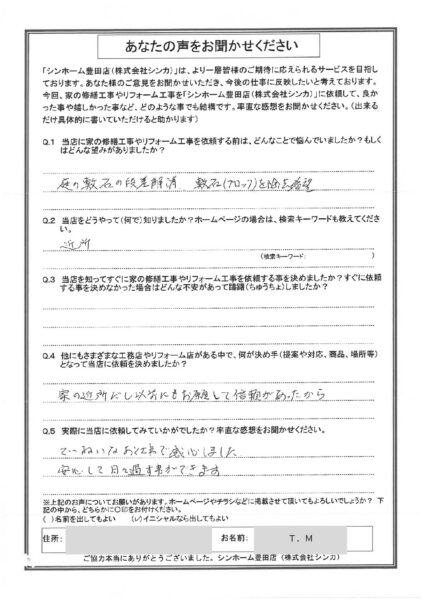 あなたの声をお聞かせください
「シンホーム豊田店(株式会社シンカ)」は、より一層皆様のご期待に応えられるサービスを目指し
ております。あなた様のご意見をお聞かせいただき、今後の仕事に反映したいと考えております。
今回、家の修繕工事やリフォーム工事を「シンホーム豊田店(株式会社シンカ)」に依頼して、良か
った事や嬉しかった事など、どのような事でも結構です。率直な感想をお聞かせください。(出来る
だけ具体的に書いていただけると助かります)
Q.1 当店に家の修繕工事やリフォーム工事を依頼する前は、どんなことで悩んでいましたか?もしく
はどんな望みがありましたか?
庭の敷石の段差解消 敷石(ブロック)を希望
Q.2 当店をどうやって(何で)知りましたか?ホームページの場合は、検索キーワードも教えてくださ
い。
近所
(検索キーワード: )
Q.3 当店を知ってすぐに家の修繕工事やリフォーム工事を依頼する事を決めましたか?すぐに依頼
する事を決めなかった場合はどんな不安があって躊躇(ちゅうちょ)しましたか?
Q.4 他にもさまざまな工務店やリフォーム店がある中で、何が決め手(提案や対応、商品、場所等)
となって当店に依頼を決めましたか?
家の近所だし以前にもお願して信頼があったから
Q.5 実際に当店に依頼してみていかがでしたか?率直な感想をお聞かせください。
ていねいなお仕事で感心しました
安心して日々過す事ができます
※上記のお声についてお願いがあります。ホームページやチラシなどに掲載させて頂いてもよろしいでしょうか? 下
記の中から、どちらかに○印をお付けください。
( )名前を出してもよい (✓)イニシャルなら出してもよい
住所: お名前: T.M
ご協力本当にありがとうございました。シンホーム豊田店 (株式会社シンカ)